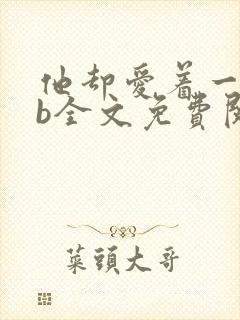 他却爱着一
b全文免費閱
菜頭大哥